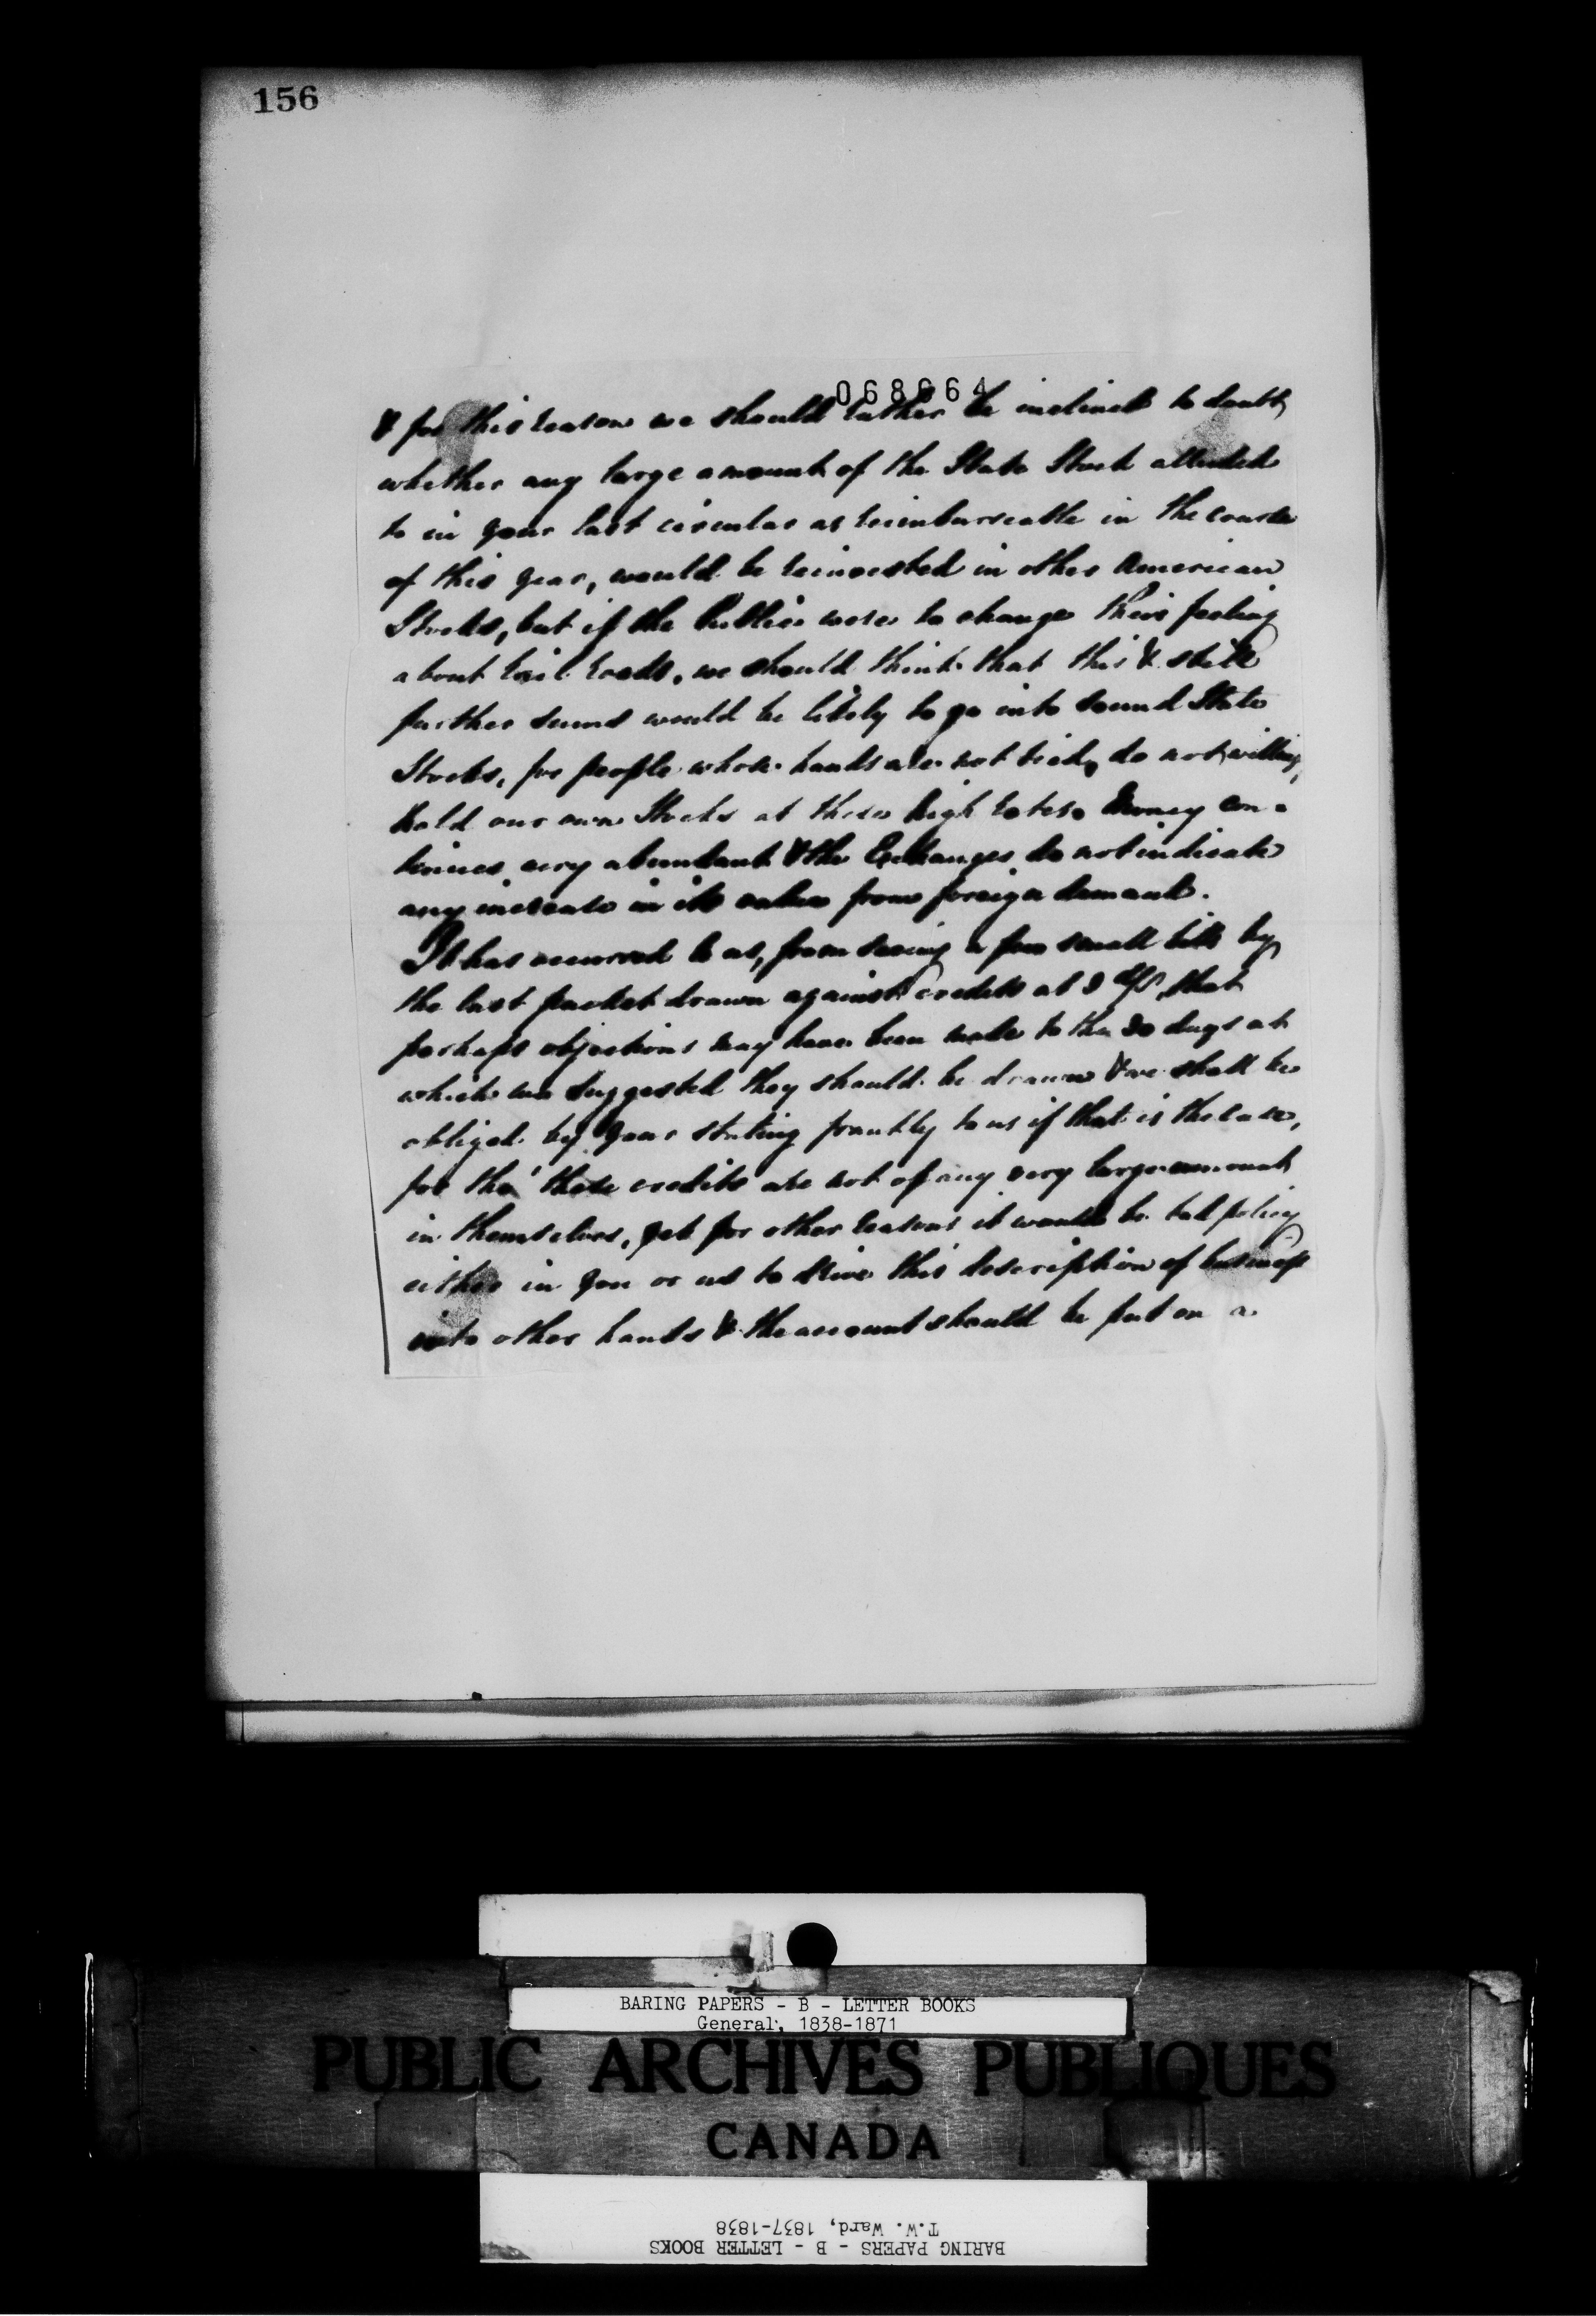 156
068664
& for this reason we should rather be inclined to doubt
whether any large amount of the State Stock alluded
to in your last circular as reimburseable in the course
of this year, would be reinvested in other American
Stocks, but if the Public were to change their feeling
about rail roads, we should think that this & still
further sums would be likely to go into sound State
Stocks, for people whose hands are not tied, do not willingly
hold our own Stocks at these high rates. Money con-
tinues very abundant & the Exchanges do not indicate
any increase in its value from foreign demand.
It has occurred to us, from seeing a few small bills by
the last packet drawn against credits at d/s, that
perhaps objections may have been made to the 30 days at
which we suggested they should be drawn & we shall be
obliged by your stating frankly to us if that is the case,
for tho' these credits are not of any very large amount
in themselves, yet for other reasons it would be bad policy
either in you or us to drive this description of business
into other hands & the account should be put on a
BARING PAPERS - B - LETTER BOOKS
General, 1838-1871
PUBLIC ARCHIVES PUBLIQUES
CANADA
T.W. Ward, 1837-1838
BARING PAPERS - B - LETTER BOOKS